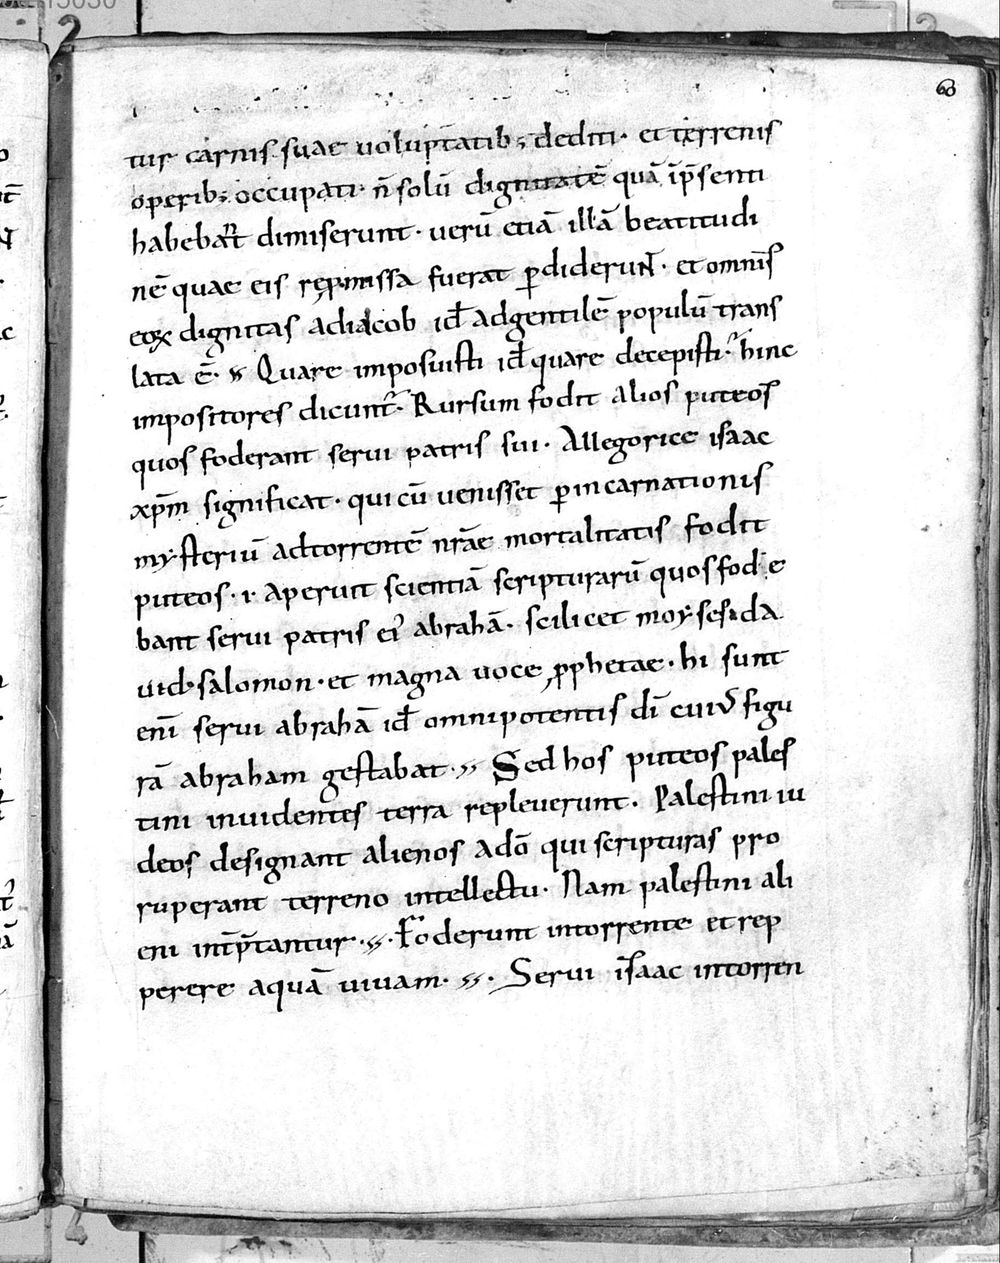 60
tur carnis suae uoluptatib; dediti · et terrenis
operib; occupati · n̄ solū dignitatē quā īp̄senti
habebant dimiserunt · uerū etiā illā beatitudi
nē quae eis repmissa fuerat ꝑdiderunt · et omnis
eoꝝ dignitas adiacob id̄ adgentilē populū trans
lata ē · Quare imposuisti id̄ quare decepisti · hinc
impositores dicunt᷑ · Rursum fodit alios puteos
quos foderant serui patris sui · Allegorice isaac
xp̄m significat · qui cū uenisset ꝑincarnationis
mysteriū adtorrentē nr̄ae mortalitatis fodit
puteos · i · aperuit scientiā scripturarū quos fode
bant serui patris ei᾽ abrahā · scilicet moyses · da
uid · salomon · et magna uoce ꝓphetae · hi sunt
enī serui abrahā id̄ omnipotentis dī cuius figu
rā abraham gestabat · Sed hos puteos pales
tini inuidentes terra repleuerunt · Palestini iu
deos designant alienos adō qui scripturas pro
ruperant terreno intellectu · Nam palestini ali
eni intp̄tantur · Foderunt intorrente et rep
perere aquā uiuam · Serui isaac intorren